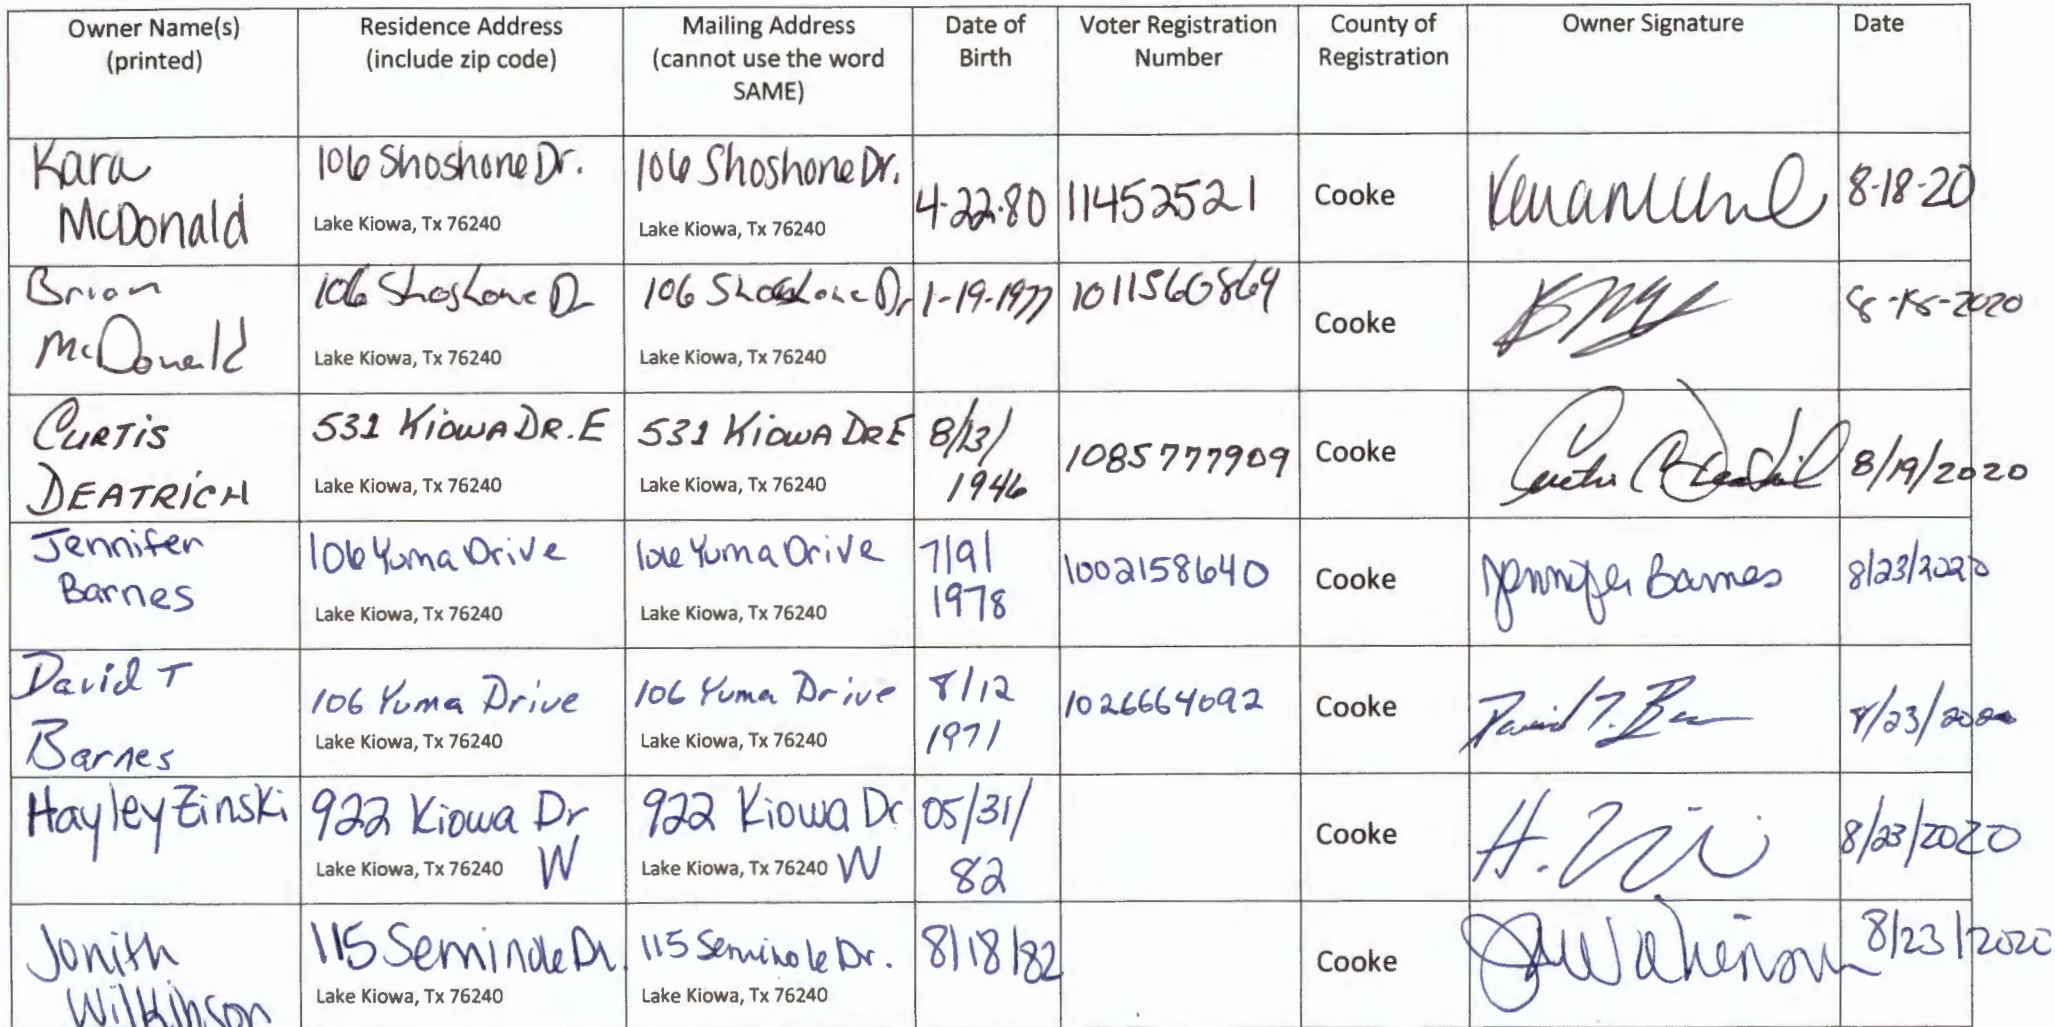 Owner Name(s)
(printed)
Residence Address
(include zip code)
Mailing Address
(cannot use the word
SAME)
Date of
Birth
Voter Registration
Number
County of
Registration
Owner Signature
Date
Kara
McDonald
106 Shoshone Dr.
Lake Kiowa, Tx 76240
106 Shoshone Dr.
Lake Kiowa, Tx 76240
4-22-80
114525221
Cooke
8-18-20
Brian
McDonald
106 Shoshone Dr
Lake Kiowa, Tx 76240
106 Shoshone Dr
Lake Kiowa, Tx 76240
1-19-1977
1011560869
Cooke
8-18-2020
CURTIS
DEATRICH
531 KIOWA DR. E
Lake Kiowa, Tx 76240
531 KIOWA DR E
Lake Kiowa, Tx 76240
8/13/
1946
1085777909
Cooke
8/19/2020
Jennifer
Barnes
106 Yuma Drive
Lake Kiowa, Tx 76240
106 Yuma Drive
Lake Kiowa, Tx 76240
7/9/
1978
1002158640
Cooke
Jennifer Barnes
8/23/2020
David T
Barnes
106 Yuma Drive
Lake Kiowa, Tx 76240
106 Yuma Drive
Lake Kiowa, Tx 76240
8/12
1971
1026664092
Cooke
David T. Ba
8/23/2020
Hayley Zinski
922 Kiowa Dr
Lake Kiowa, Tx 76240 W
922 Kiowa Dr
Lake Kiowa, Tx 76240 W
05/31/
82
Cooke
H. Zi
8/23/2020
Jonith
Wilkinson
115 Seminole Dr.
Lake Kiowa, Tx 76240
115 Seminole Dr.
Lake Kiowa, Tx 76240
8/18/82
Cooke
8/23/2020